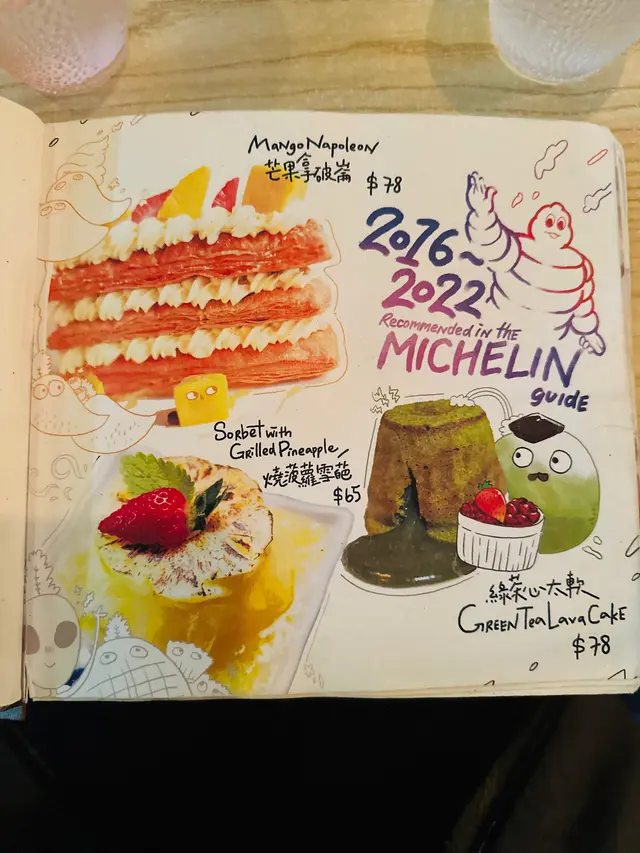 Mango Napoleon
芒果拿破崙 $78
2016~
2022
Recommended in the
MICHELIN
guide
Sorbet with
Grilled Pineapple/
燒菠蘿雪葩
$65
綠茶心太軟
GREEN Tea Lava Cake
$78